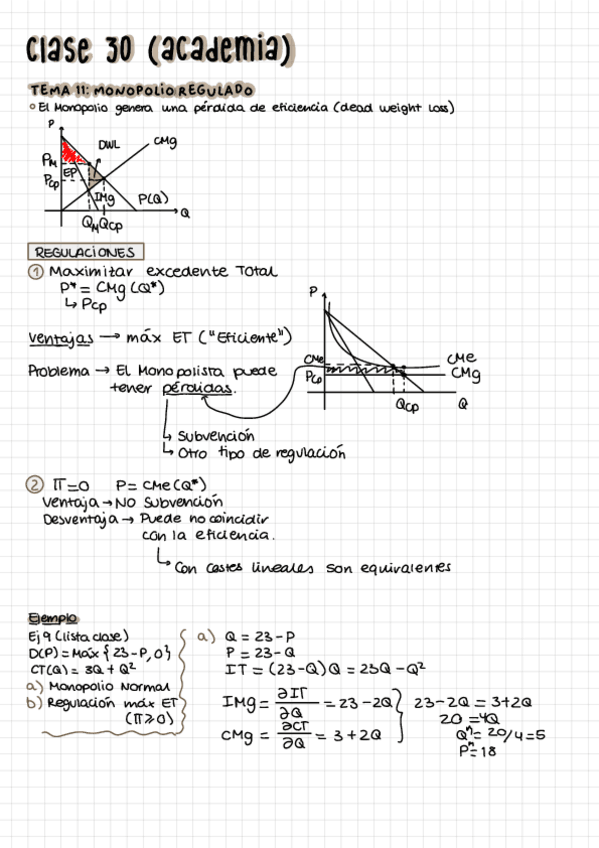 Clase 30 (academia)
TEMA 11: MONOPOLIO REGULADO
El Monopolio genera una pérdida de eficiencia (dead weight loss)
P
DWL
CMg
PM
EP
Pcp
IMg
P(Q)
Q
QM Qcp
REGULACIONES
① Maximizar excedente TOTAL
P* = CMg (Q*)
↳ Pcp
Ventajas → máx ET ("Eficiente")
Problema → El Monopolista puede
tener pérdidas.
↳ Subvención
↳ Otro tipo de regulación
P
CMe
Pcp
CMe
CMg
Qcp
Q
② Π=0 P= CMe(Q*)
Ventaja → NO Subvención
Desventaja → Puede no coincidir
con la eficiencia.
↳ Con costes lineales son equivalentes
Ejemplo
Ej 9 (lista clase)
D(P) = Máx { 23-P, 0}
CT(Q) = 3Q + Q²
a) Monopolio Normal
b) Regulación máx ET
(Π≥0)
a) Q = 23-P
P = 23-Q
IT = (23-Q)Q = 23Q - Q²
IMg = ∂IT/∂Q = 23-2Q
CMg = ∂CT/∂Q = 3+2Q
23-2Q = 3+2Q
20 = 4Q
Qᴹ = 20/4 = 5
Pᴹ = 18